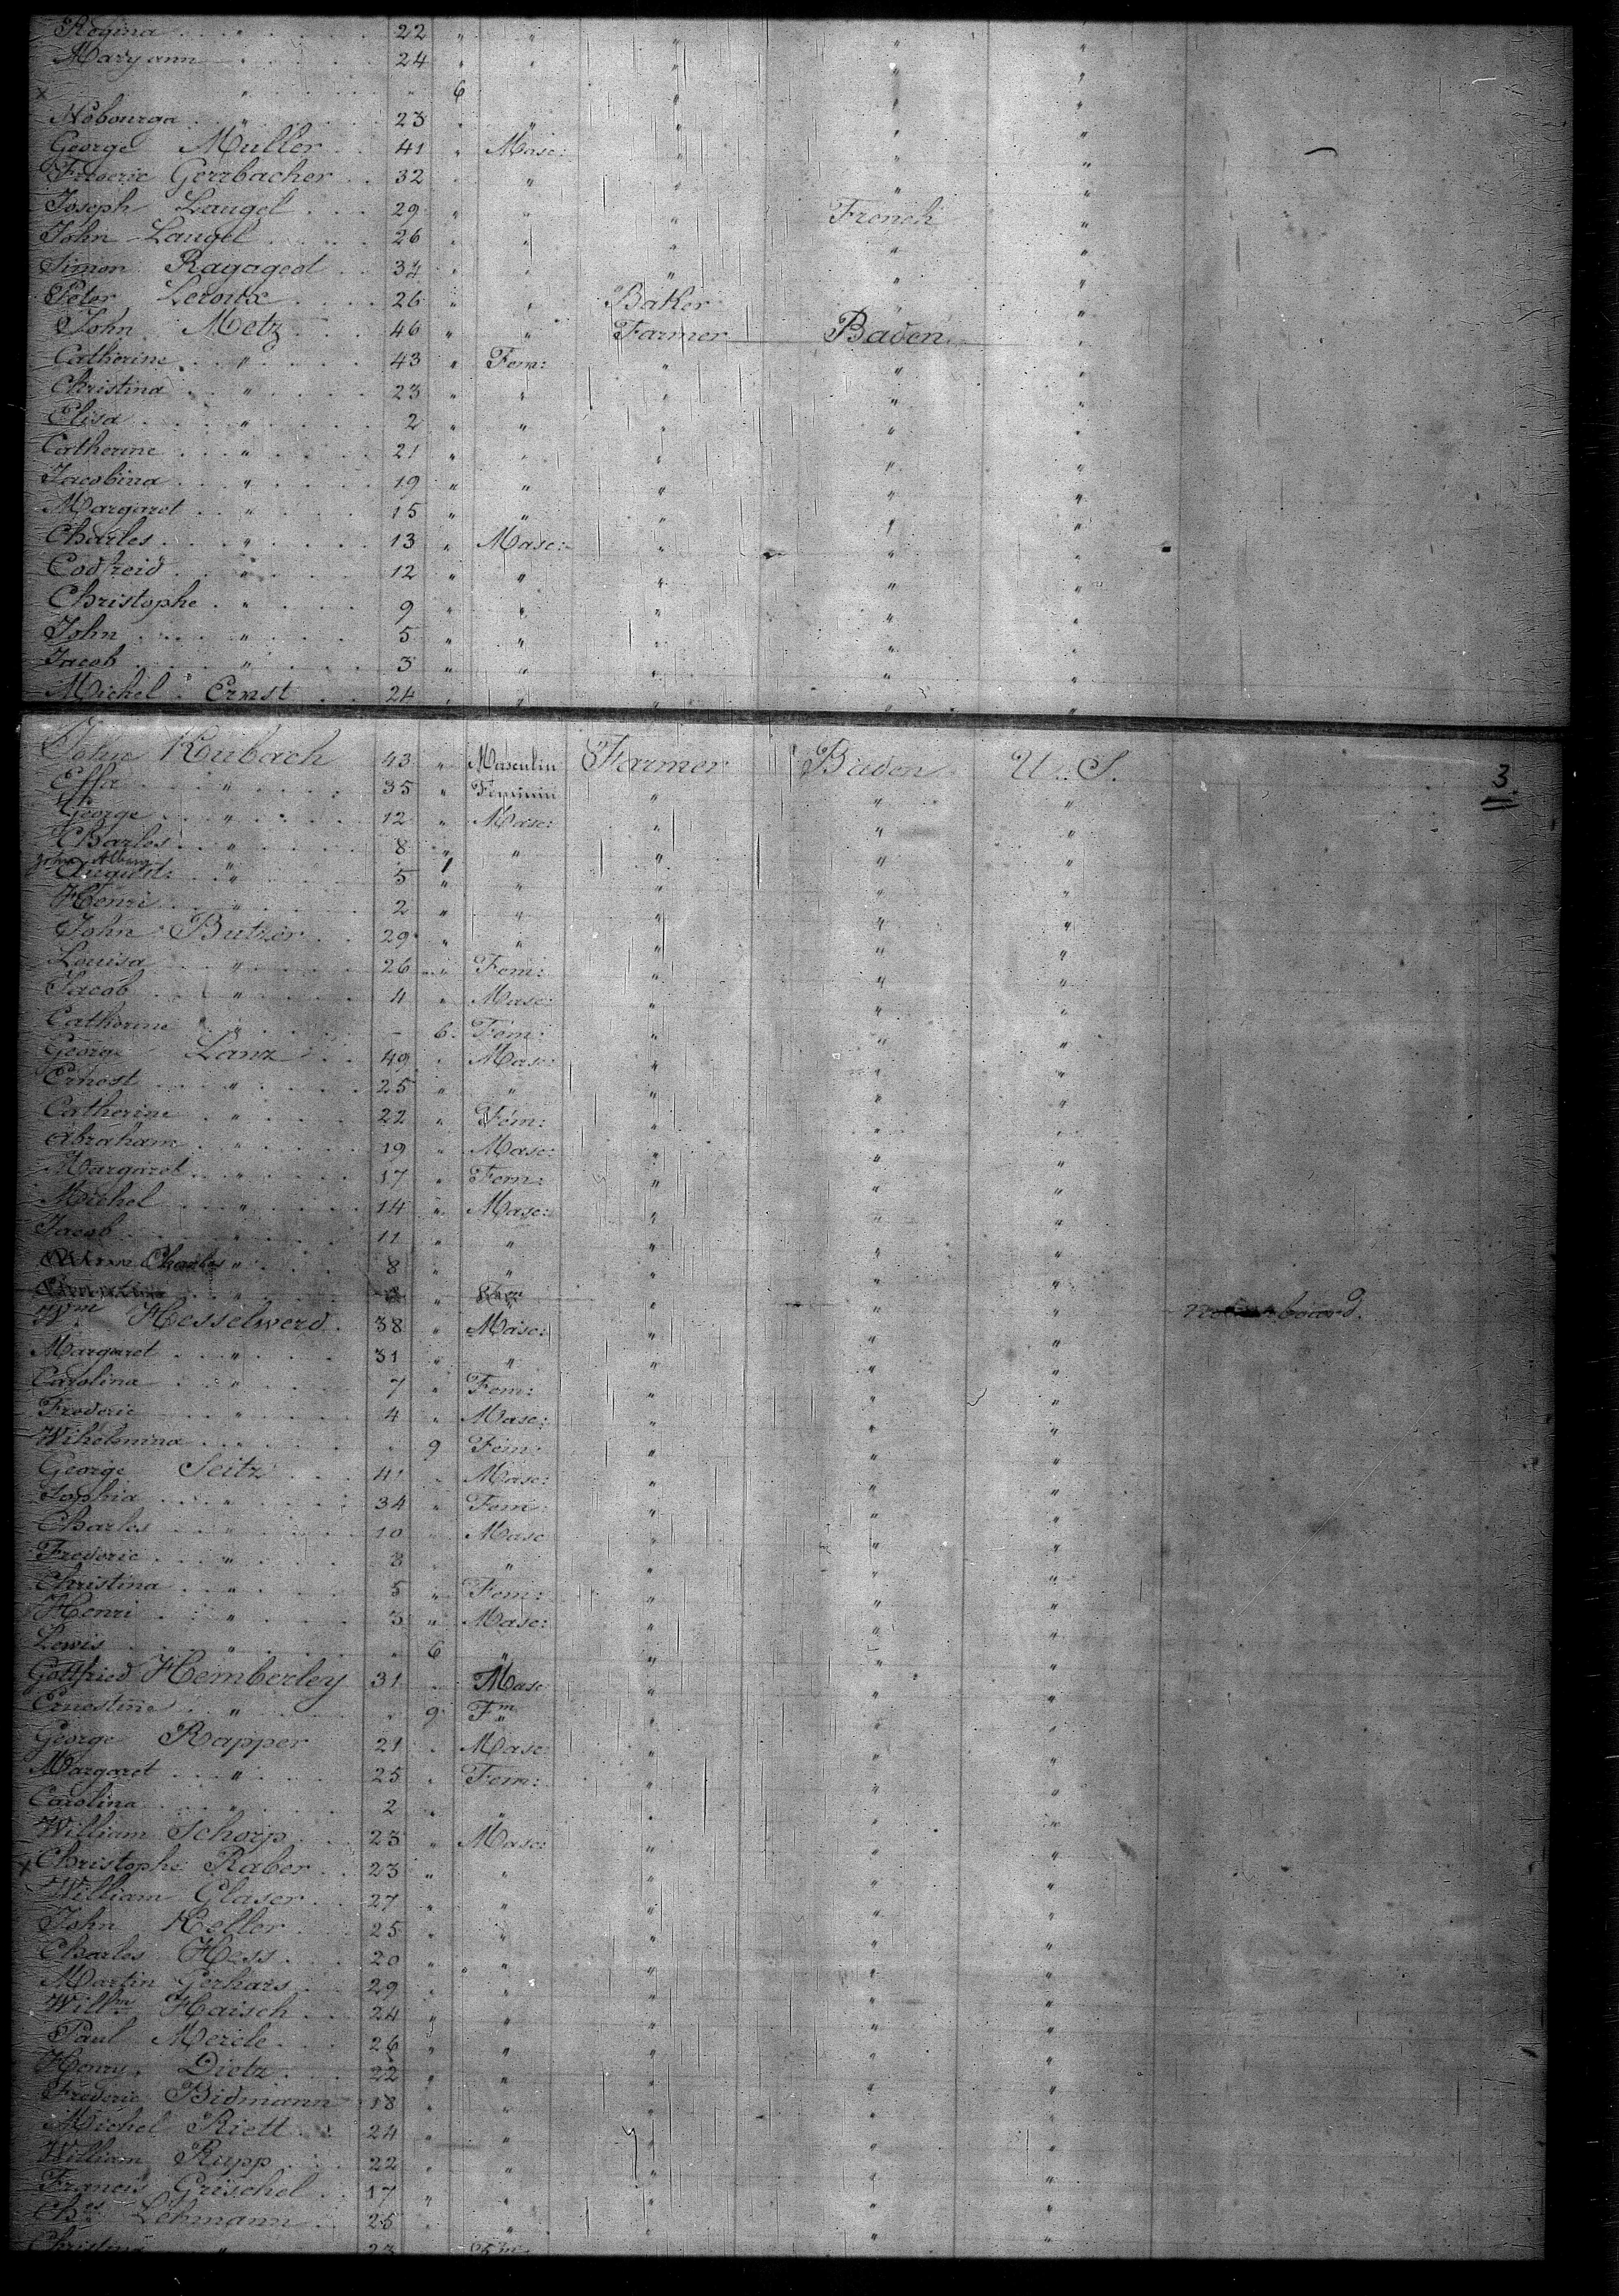 Regina " 22 " " " " "
Maryann " 24 " " " " "
x " " 6 " " "
Nobourga " 23 " " " " "
George Muller 41 " Masc: " " "
Frederic Gerrbacher 32 " " " " "
Joseph Laugel 29 " " " French "
John Laugel 26 " " " " "
Simon Ragageol 34 " " " " "
Peter Leroux 26 " " Baker " "
John Metz 46 " " Farmer Baden "
Catherine " 43 " Fem: " " "
Christina " 23 " " " " "
Elisa " 2 " " " " "
Catherine " 21 " " " " "
Jacobina " 19 " " " " "
Margaret " 15 " " " " "
Charles " 13 " Masc: " " "
Codfreid " 12 " " " " "
Christophe " 9 " " " " "
John " 5 " " " " "
Jacob " 3 " " " " "
Michel Ernst 24 " " " " "
John Kubach 43 " Masculin Farmer Baden U. S. 3
Effa " 35 " Feminin " " "
George " 12 " Masc: " " "
Charles " 8 " " " " "
August: " 5 " " " " "
Henri " 2 " " " " "
John Butzer 29 " " " " "
Louisa " 26 " Fem: " " "
Jacob " 4 " Masc: " " "
Catherine " - 6. Fem: " " "
George Lanz 49 " Masc: " " "
Ernest " 25 " " " " "
Catherine " 22 " Fem: " " "
Abraham " 19 " Masc: " " "
Margaret " 17 " Fem: " " "
Michel " 14 " Masc: " " "
Jacob " 11 " " " " "
Charles " 8 " " " " "
" " " " " not on board.
Wm Hesselwerd 38 " Masc: " " "
Margaret " 31 " " " " "
Carolina " 7 " Fem: " " "
Frederic " 4 " Masc: " " "
Wihelmina " " 9 Fem: " " "
George Seitz 41 " Masc: " " "
Sophia " 34 " Fem: " " "
Charles " 10 " Masc " " "
Frederic " 8 " " " " "
Christina " 5 " Fem: " " "
Henri " 3 " Masc: " " "
Lewis " " 6 " " " "
Gottfried Hemberley 31 " Masc " " "
Ernestine " " 9 Fm " " "
George Rapper 21 " Masc: " " "
Margaret " 25 " Fem: " " "
Carolina " 2 " " " " "
William Schorp 23 " Masc: " " "
x Christophe Raber 23 " " " " "
William Glaser 27 " " " " "
John Keller 25 " " " " "
Charles Hess 20 " " " " "
Martin Gerhars 29 " " " " "
Willm Haisch 24 " " " " "
Paul Mercle 26 " " " " "
Henry Dietz 22 " " " " "
Frederic Bidmann 18 " " " " "
Michel Riett 24 " " " " "
William Rupp 22 " " " " "
Francis Grischel 17 " " " " "
Chs Lehmann 25 " " " " "
Christina " 23